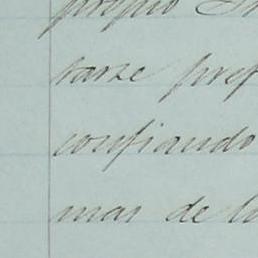 propio
tarse pref
confiando
mas de lo